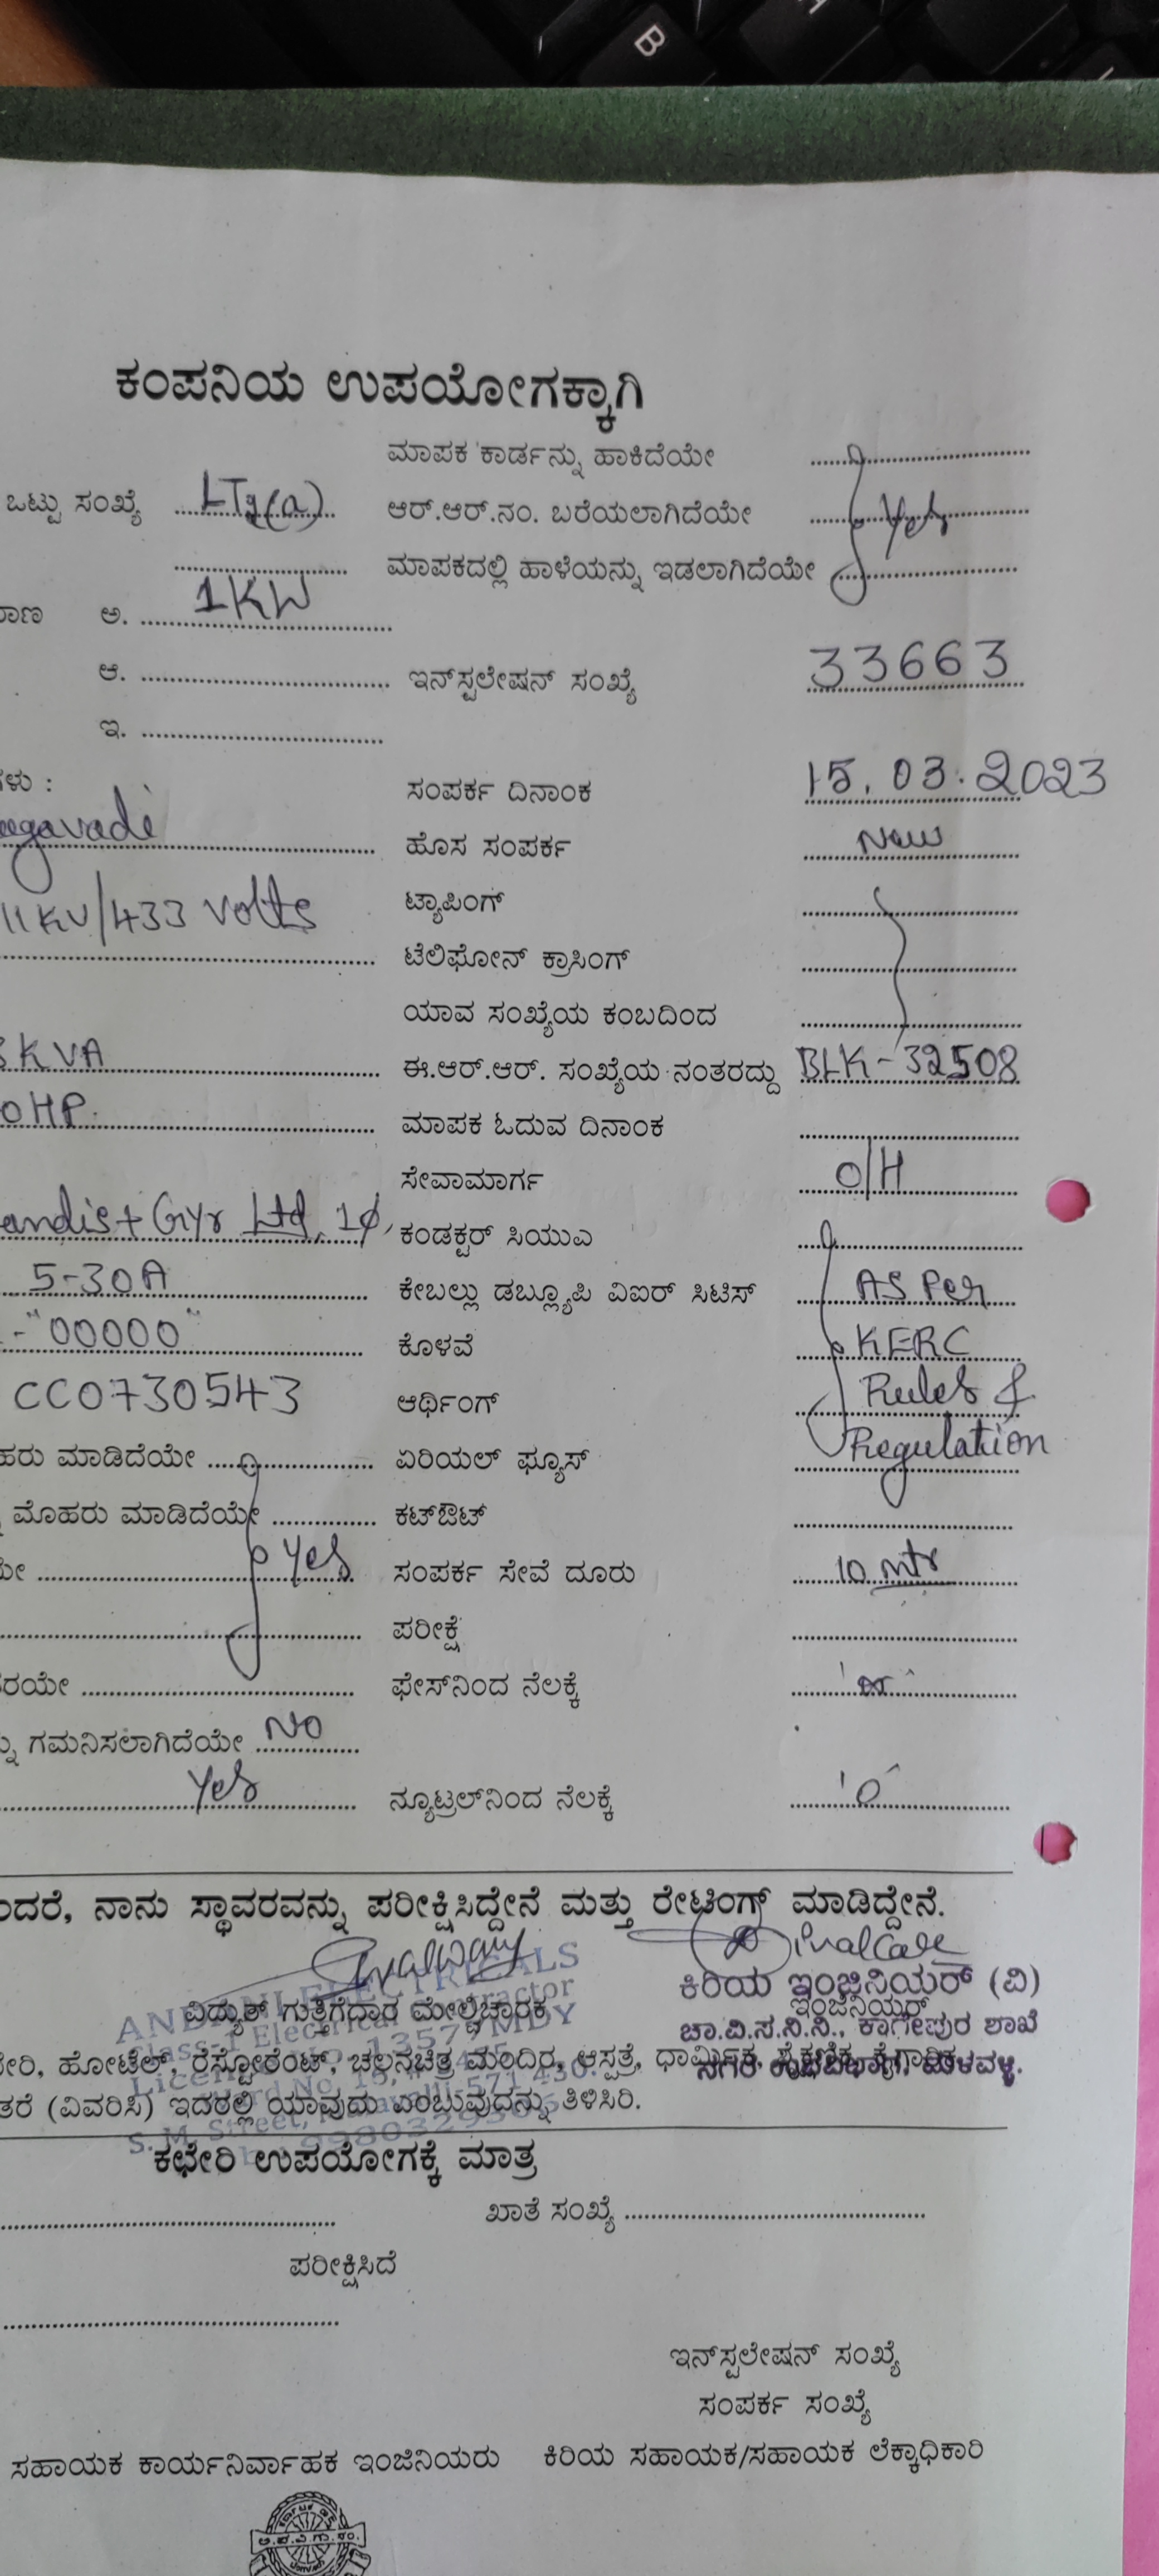 B
ಕಂಪನಿಯ ಉಪಯೋಗಕ್ಕಾಗಿ
ಮಾಪಕ ಕಾರ್ಡನ್ನು ಹಾಕಿದೆಯೇ
ಒಟ್ಟು ಸಂಖ್ಯೆ LT2(a) ಆರ್.ಆರ್.ನಂ. ಬರೆಯಲಾಗಿದೆಯೇ Yes
ಮಾಪಕದಲ್ಲಿ ಹಾಳೆಯನ್ನು ಇಡಲಾಗಿದೆಯೇ
ಅ. 1KW
ಆ. ಇನ್‌ಸ್ಟಲೇಷನ್ ಸಂಖ್ಯೆ 33663
ಇ.
ಗಳು : ಸಂಪರ್ಕ ದಿನಾಂಕ 15.03.2023
ಹೊಸ ಸಂಪರ್ಕ New
11KV/433 Volts ಟ್ಯಾಪಿಂಗ್
ಟೆಲಿಫೋನ್ ಕ್ರಾಸಿಂಗ್
ಯಾವ ಸಂಖ್ಯೆಯ ಕಂಬದಿಂದ
KVA ಈ.ಆರ್.ಆರ್. ಸಂಖ್ಯೆಯ ನಂತರದ್ದು BLK-32508
0HP. ಮಾಪಕ ಓದುವ ದಿನಾಂಕ
ಸೇವಾಮಾರ್ಗ O/H
andis+Gyr Ltd, 1ϕ, ಕಂಡಕ್ಟರ್ ಸಿಯುಎ
5-30A ಕೇಬಲ್ಲು ಡಬ್ಲ್ಯೂಪಿ ವಿಐರ್ ಸಿಟಿಸ್ AS Per
-"00000" ಕೊಳವೆ KERC
CC0730543 ಆರ್ಥಿಂಗ್ Rules &
ಹರು ಮಾಡಿದೆಯೇ ಏರಿಯಲ್ ಫ್ಯೂಸ್ Regulation
ಮೊಹರು ಮಾಡಿದೆಯೇ ಕಟ್‌ಔಟ್
ಯೇ Yes ಸಂಪರ್ಕ ಸೇವೆ ದೂರು 10 mtr
ಪರೀಕ್ಷೆ
ರೆಯೇ ಫೇಸ್‌ನಿಂದ ನೆಲಕ್ಕೆ
ಗಮನಿಸಲಾಗಿದೆಯೇ NO
Yes ನ್ಯೂಟ್ರಲ್‌ನಿಂದ ನೆಲಕ್ಕೆ '0'
ಂದರೆ, ನಾನು ಸ್ಥಾವರವನ್ನು ಪರೀಕ್ಷಿಸಿದ್ದೇನೆ ಮತ್ತು ರೇಟಿಂಗ್ ಮಾಡಿದ್ದೇನೆ.
ವಿದ್ಯುತ್ ಗುತ್ತಿಗೆದಾರ ಮೇಲ್ವಿಚಾರಕ ಕಿರಿಯ ಇಂಜಿನಿಯರ್ (ವಿ)
ಇಂಜಿನಿಯರ್
ಚಾ.ವಿ.ಸ.ನಿ.ನಿ., ಕಾಗೇಪುರ ಶಾಖೆ
ೇರಿ, ಹೋಟೆಲ್, ರೆಸ್ಟೋರೆಂಟ್, ಚಲನಚಿತ್ರ ಮಂದಿರ, ಆಸ್ಪತ್ರೆ, ಧಾರ್ಮಿಕ,
ತರೆ (ವಿವರಿಸಿ) ಇದರಲ್ಲಿ ಯಾವುದು ಎಂಬುವುದನ್ನು ತಿಳಿಸಿರಿ.
ಕಛೇರಿ ಉಪಯೋಗಕ್ಕೆ ಮಾತ್ರ
ಖಾತೆ ಸಂಖ್ಯೆ
ಪರೀಕ್ಷಿಸಿದೆ
ಇನ್‌ಸ್ಟಲೇಷನ್ ಸಂಖ್ಯೆ
ಸಂಪರ್ಕ ಸಂಖ್ಯೆ
ಸಹಾಯಕ ಕಾರ್ಯನಿರ್ವಾಹಕ ಇಂಜಿನಿಯರು ಕಿರಿಯ ಸಹಾಯಕ/ಸಹಾಯಕ ಲೆಕ್ಕಾಧಿಕಾರಿ